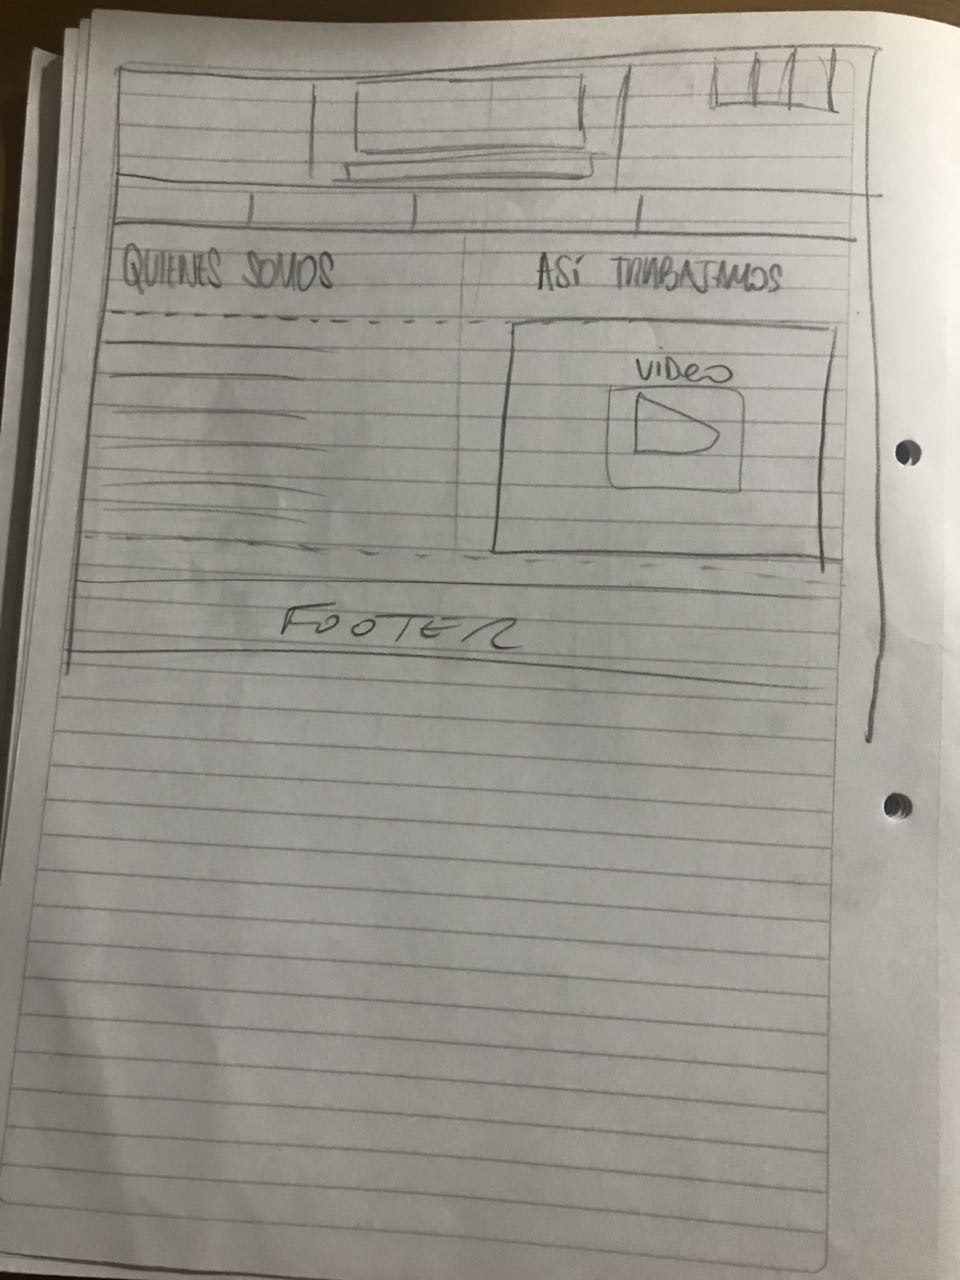 QUIENES SOMOS
ASÍ TRABAJAMOS
VIDEO
FOOTER